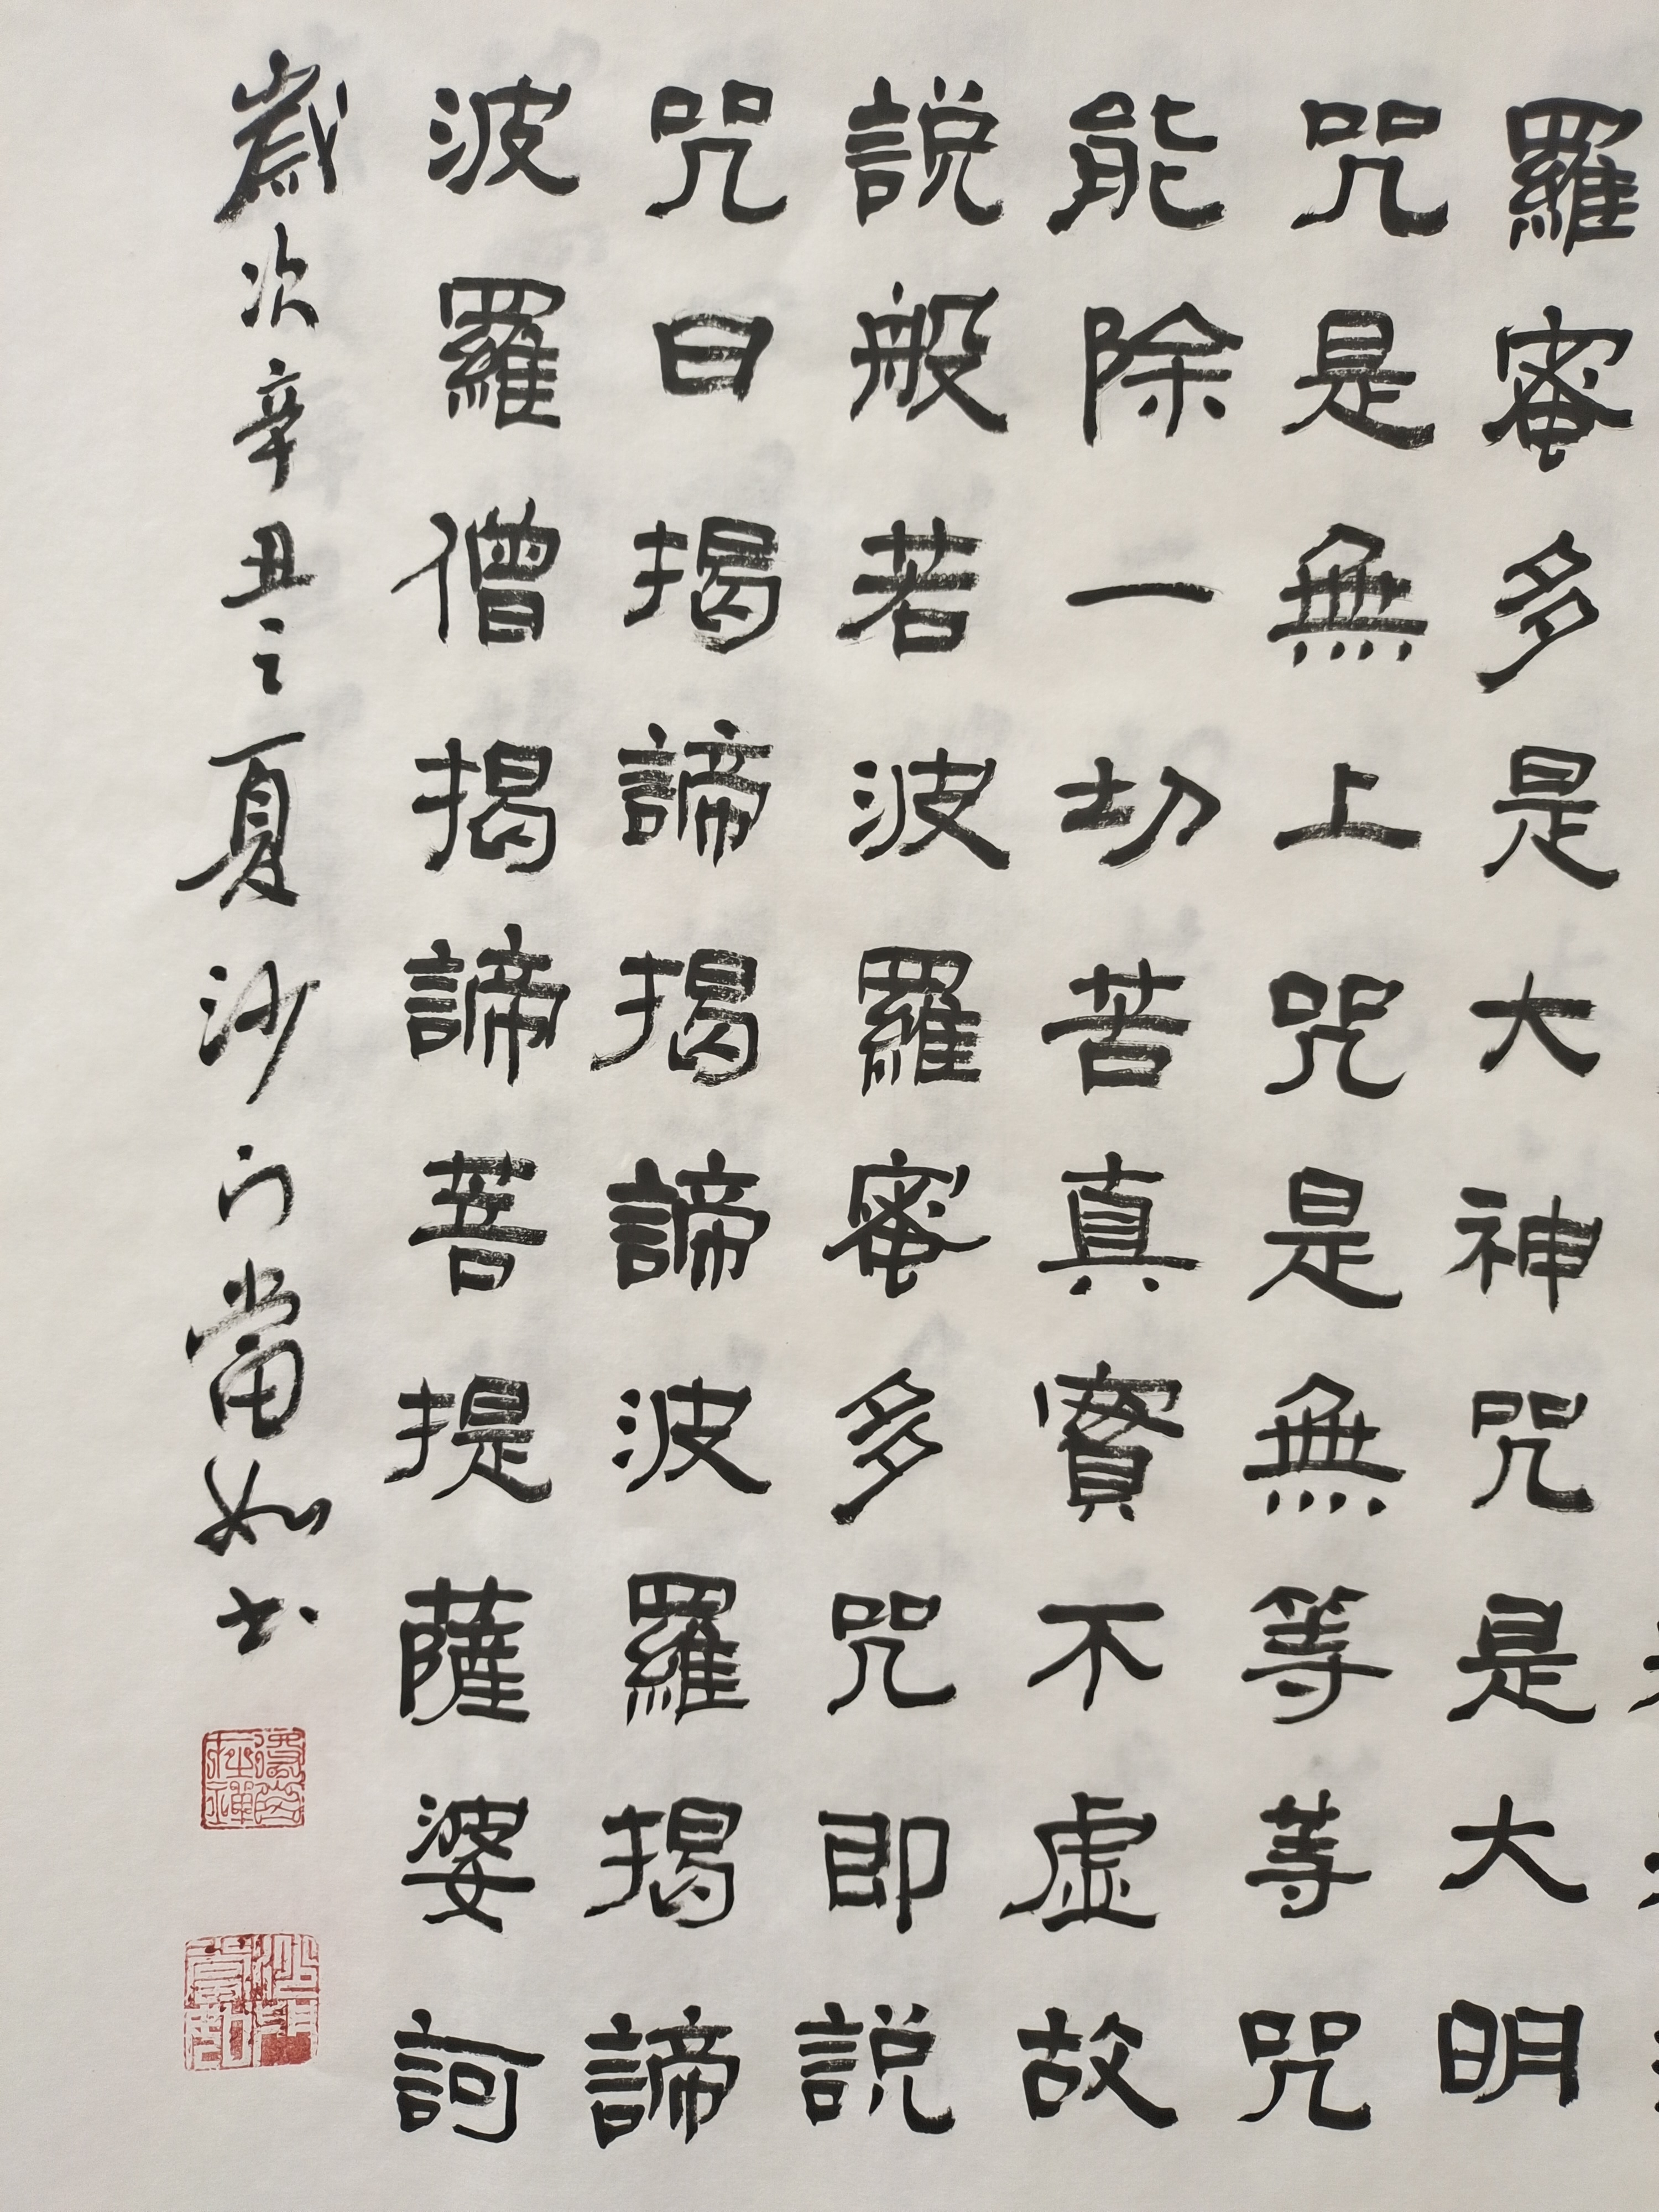 羅蜜多是大神咒是大明
咒是無上咒是無等等咒
能除一切苦真實不虛故
説般若波羅蜜多咒即説
咒曰揭諦揭諦波羅揭諦
波羅僧揭諦菩提薩婆訶
歲次辛丑之夏沙门當如书